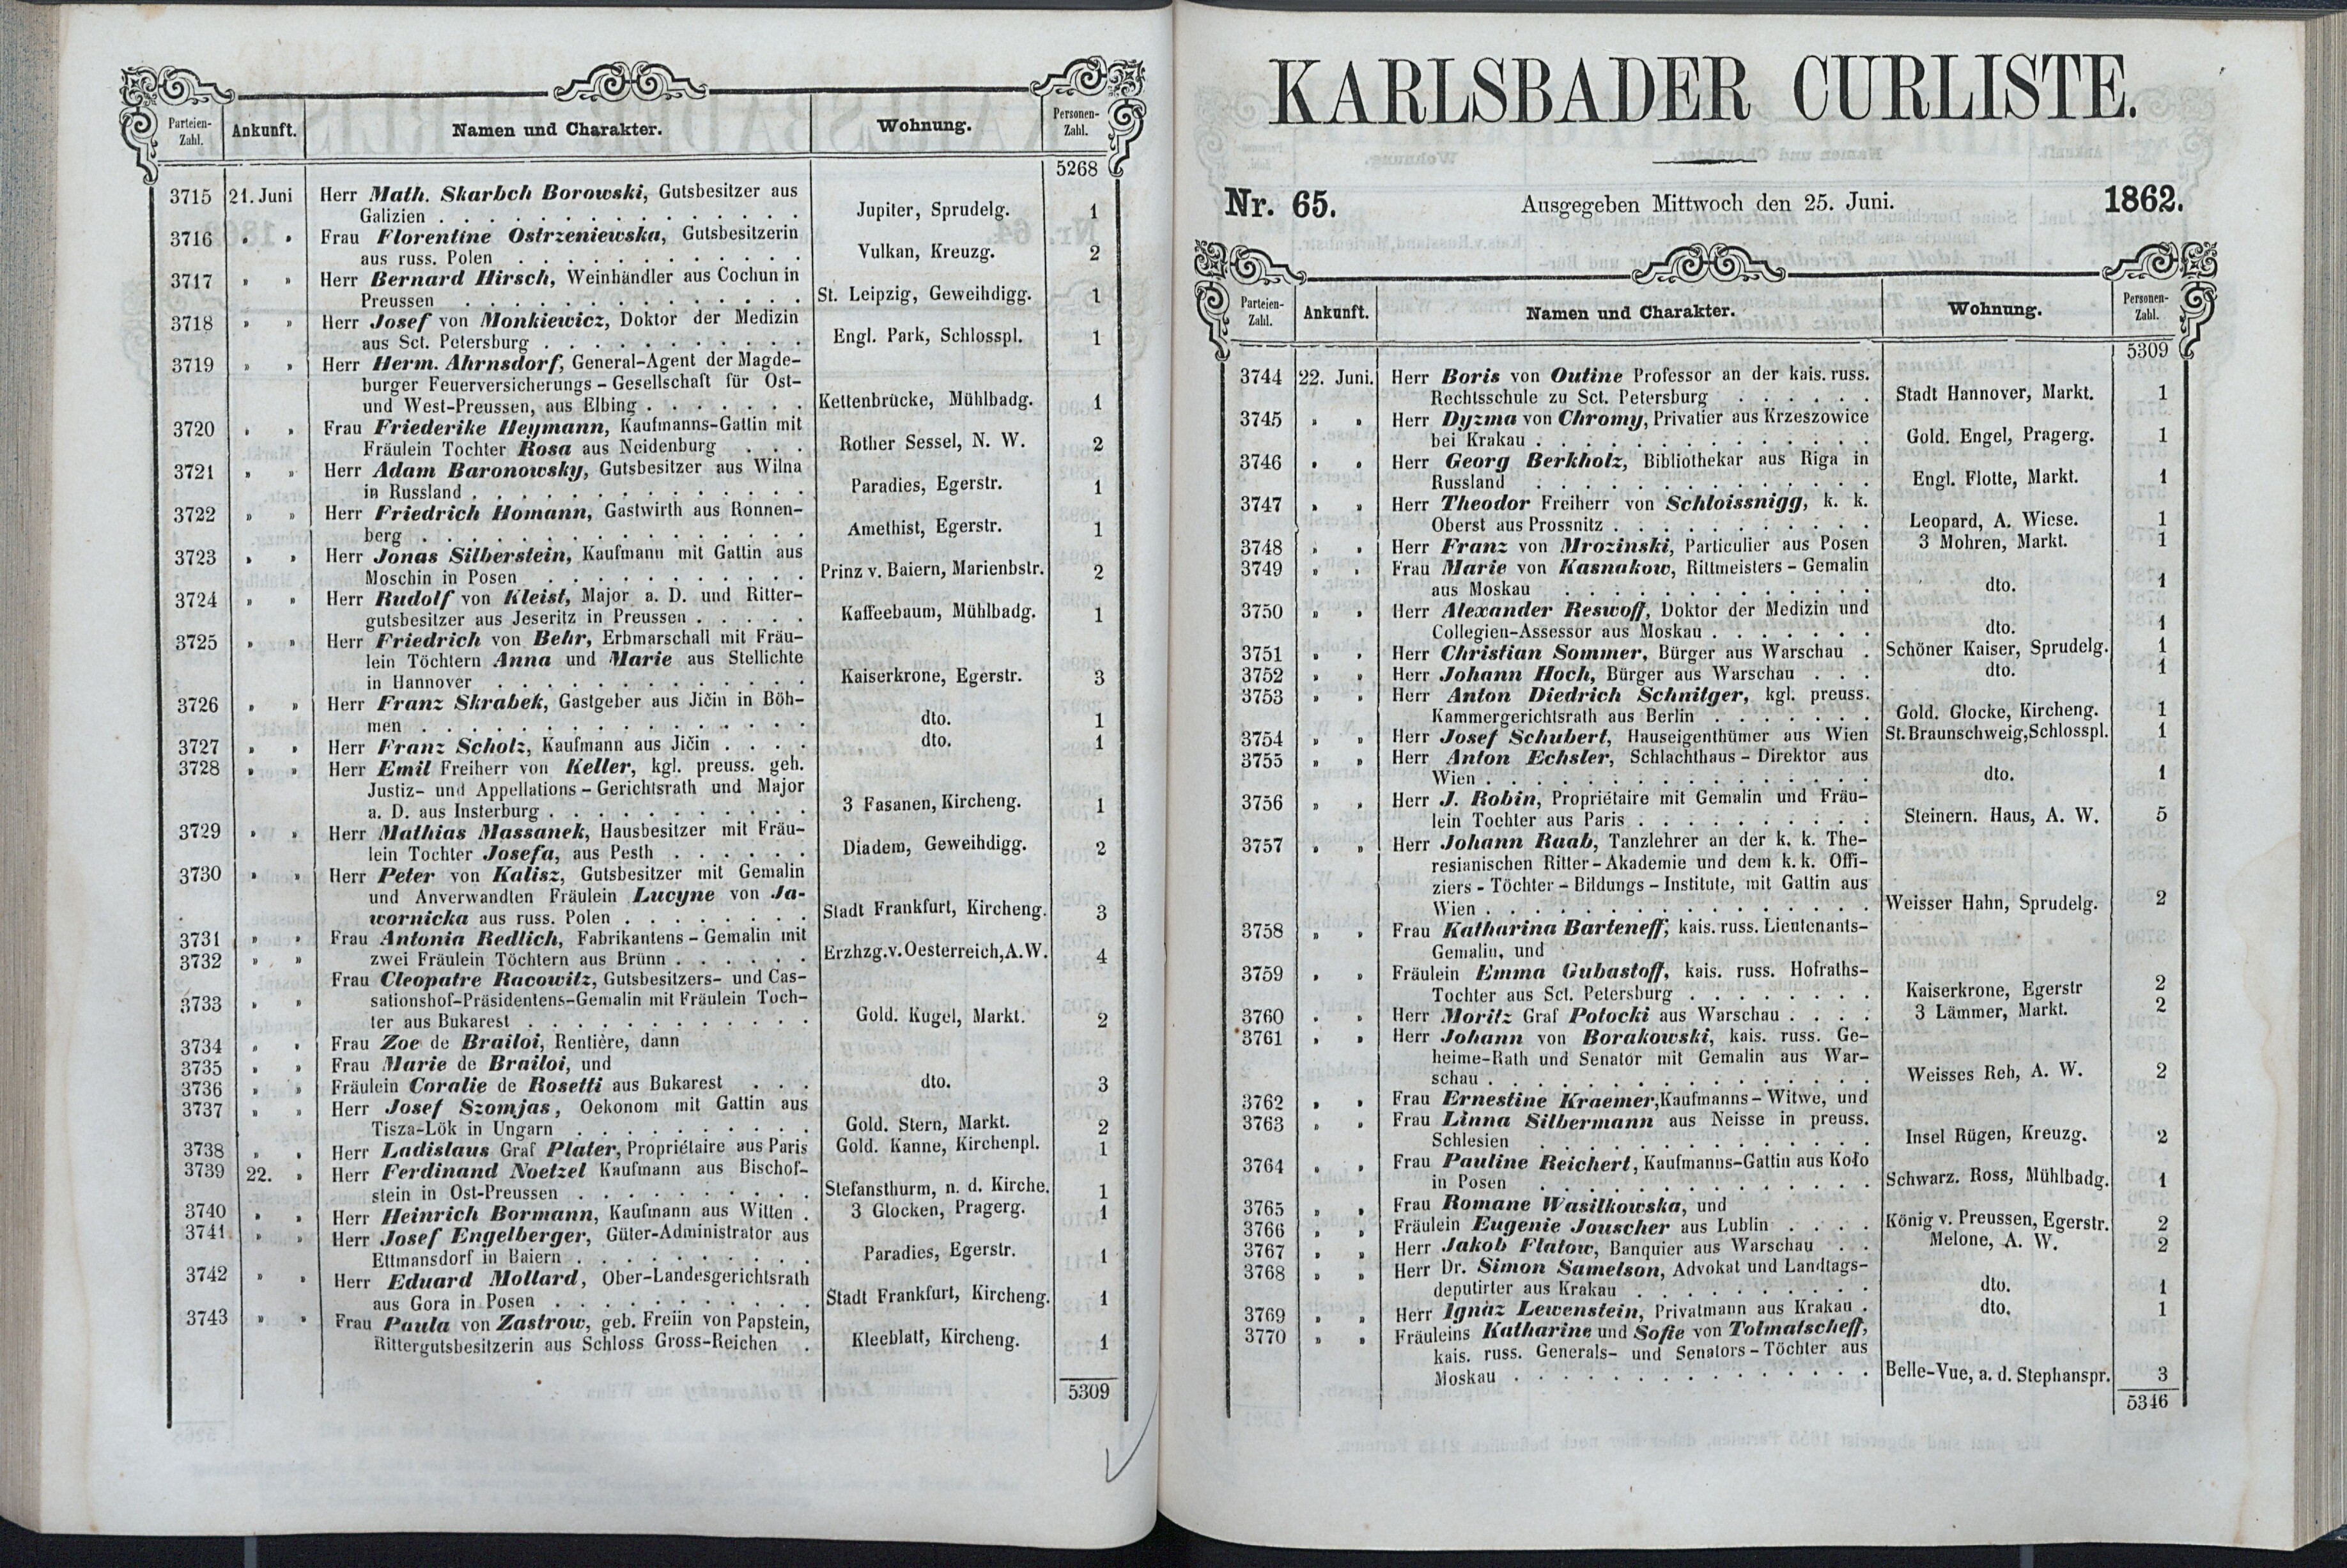 Parteien-Zahl. Ankunft. Namen und Charakter. Wohnung. Personen-Zahl.
5268
3715 21. Juni Herr Math. Skarbch Borowski, Gutsbesitzer aus
Galizien . . . Jupiter, Sprudelg. 1
3716 „ „ Frau Florentine Ostrzeniewska, Gutsbesitzerin
aus russ. Polen . . . Vulkan, Kreuzg. 2
3717 „ „ Herr Bernard Hirsch, Weinhändler aus Cochun in
Preussen . . . St. Leipzig, Geweihdigg. 1
3718 „ „ Herr Josef von Monkiewicz, Doktor der Medizin
aus Sct. Petersburg . . . Engl. Park, Schlosspl. 1
3719 „ „ Herr Herm. Ahrnsdorf, General-Agent der Magde-
burger Feuerversicherungs-Gesellschaft für Ost-
und West-Preussen, aus Elbing . . . Kettenbrücke, Mühlbadg. 1
3720 „ „ Frau Friederike Heymann, Kaufmanns-Gattin mit
Fräulein Tochter Rosa aus Neidenburg . . . Rother Sessel, N. W. 2
3721 „ „ Herr Adam Baronowsky, Gutsbesitzer aus Wilna
in Russland . . . Paradies, Egerstr. 1
3722 „ „ Herr Friedrich Homann, Gastwirth aus Ronnen-
berg . . . Amethist, Egerstr. 1
3723 „ „ Herr Jonas Silberstein, Kaufmann mit Gattin aus
Moschin in Posen . . . Prinz v. Baiern, Marienbstr. 2
3724 „ „ Herr Rudolf von Kleist, Major a. D. und Ritter-
gutsbesitzer aus Jeseritz in Preussen . . . Kaffeebaum, Mühlbadg. 1
3725 „ „ Herr Friedrich von Behr, Erbmarschall mit Fräu-
lein Töchtern Anna und Marie aus Stellichte
in Hannover . . . Kaiserkrone, Egerstr. 3
3726 „ „ Herr Franz Skrabek, Gastgeber aus Jičin in Böh-
men . . . dto. 1
3727 „ „ Herr Franz Scholz, Kaufmann aus Jičin . . . dto. 1
3728 „ „ Herr Emil Freiherr von Keller, kgl. preuss. geh.
Justiz- und Appellations-Gerichtsrath und Major
a. D. aus Insterburg . . . 3 Fasanen, Kircheng. 1
3729 „ „ Herr Mathias Massanek, Hausbesitzer mit Fräu-
lein Tochter Josefa, aus Pesth . . . Diadem, Geweihdigg. 2
3730 „ „ Herr Peter von Kalisz, Gutsbesitzer mit Gemalin
und Anverwandten Fräulein Lucyne von Ja-
wornicka aus russ. Polen . . . Stadt Frankfurt, Kircheng. 3
3731 „ „ Frau Antonia Redlich, Fabrikantens-Gemalin mit
3732 „ „ zwei Fräulein Töchtern aus Brünn . . . Erzhzg.v.Oesterreich,A.W. 4
Frau Cleopatre Racowitz, Gutsbesitzers- und Cas-
3733 „ „ sationshof-Präsidentens-Gemalin mit Fräulein Toch-
ter aus Bukarest . . . Gold. Kugel, Markt. 2
3734 „ „ Frau Zoe de Brailoi, Rentière, dann
3735 „ „ Frau Marie de Brailoi, und
3736 „ „ Fräulein Coralie de Rosetti aus Bukarest . . . dto. 3
3737 „ „ Herr Josef Szomjas, Oekonom mit Gattin aus
Tisza-Lök in Ungarn . . . Gold. Stern, Markt. 2
3738 „ „ Herr Ladislaus Graf Plater, Propriétaire aus Paris Gold. Kanne, Kirchenpl. 1
3739 22. „ Herr Ferdinand Noetzel Kaufmann aus Bischof-
stein in Ost-Preussen . . . Stefansthurm, n. d. Kirche. 1
3740 „ „ Herr Heinrich Bormann, Kaufmann aus Witten . 3 Glocken, Pragerg. 1
3741 „ „ Herr Josef Engelberger, Güter-Administrator aus
Ettmansdorf in Baiern . . . Paradies, Egerstr. 1
3742 „ „ Herr Eduard Mollard, Ober-Landesgerichtsrath
aus Gora in Posen . . . Stadt Frankfurt, Kircheng. 1
3743 „ „ Frau Paula von Zastrow, geb. Freiin von Papstein,
Rittergutsbesitzerin aus Schloss Gross-Reichen . Kleeblatt, Kircheng. 1
5309
KARLSBADER CURLISTE.
Nr. 65. Ausgegeben Mittwoch den 25. Juni. 1862.
Parteien-Zahl. Ankunft. Namen und Charakter. Wohnung. Personen-Zahl.
5309
3744 22. Juni. Herr Boris von Outine Professor an der kais. russ.
Rechtsschule zu Sct. Petersburg . . . Stadt Hannover, Markt. 1
3745 „ „ Herr Dyzma von Chromy, Privatier aus Krzeszowice
bei Krakau . . . Gold. Engel, Pragerg. 1
3746 „ „ Herr Georg Berkholz, Bibliothekar aus Riga in
Russland . . . Engl. Flotte, Markt. 1
3747 „ „ Herr Theodor Freiherr von Schloissnigg, k. k.
Oberst aus Prossnitz . . . Leopard, A. Wiese. 1
3748 „ „ Herr Franz von Mrozinski, Particulier aus Posen 3 Mohren, Markt. 1
3749 „ „ Frau Marie von Kasnakow, Rittmeisters-Gemalin
aus Moskau . . . dto. 1
3750 „ „ Herr Alexander Reswoff, Doktor der Medizin und
Collegien-Assessor aus Moskau . . . dto. 1
3751 „ „ Herr Christian Sommer, Bürger aus Warschau . Schöner Kaiser, Sprudelg. 1
3752 „ „ Herr Johann Hoch, Bürger aus Warschau . . . dto. 1
3753 „ „ Herr Anton Diedrich Schnitger, kgl. preuss.
Kammergerichtsrath aus Berlin . . . Gold. Glocke, Kircheng. 1
3754 „ „ Herr Josef Schubert, Hauseigenthümer aus Wien St. Braunschweig, Schlosspl. 1
3755 „ „ Herr Anton Echsler, Schlachthaus-Direktor aus
Wien . . . dto. 1
3756 „ „ Herr J. Robin, Propriétaire mit Gemalin und Fräu-
lein Tochter aus Paris . . . Steinern. Haus, A. W. 5
3757 „ „ Herr Johann Raab, Tanzlehrer an der k. k. The-
resianischen Ritter-Akademie und dem k. k. Offi-
ziers-Töchter-Bildungs-Institute, mit Gattin aus
Wien . . . Weisser Hahn, Sprudelg. 2
3758 „ „ Frau Katharina Barteneff, kais. russ. Lieutenants-
Gemalin, und
3759 „ „ Fräulein Emma Gubastoff, kais. russ. Hofraths-
Tochter aus Sct. Petersburg . . . Kaiserkrone, Egerstr 2
3760 „ „ Herr Moritz Graf Potocki aus Warschau . . . 3 Lämmer, Markt. 2
3761 „ „ Herr Johann von Borakowski, kais. russ. Ge-
heime-Rath und Senator mit Gemalin aus War-
schau . . . Weisses Reh, A. W. 2
3762 „ „ Frau Ernestine Kraemer, Kaufmanns-Witwe, und
3763 „ „ Frau Linna Silbermann aus Neisse in preuss.
Schlesien . . . Insel Rügen, Kreuzg. 2
3764 „ „ Frau Pauline Reichert, Kaufmanns-Gattin aus Koło
in Posen . . . Schwarz. Ross, Mühlbadg. 1
3765 „ „ Frau Romane Wasilkowska, und
3766 „ „ Fräulein Eugenie Jouscher aus Lublin . . . König v. Preussen, Egerstr. 2
3767 „ „ Herr Jakob Flatow, Banquier aus Warschau . . Melone, A. W. 2
3768 „ „ Herr Dr. Simon Samelson, Advokat und Landtags-
deputirter aus Krakau . . . dto. 1
3769 „ „ Herr Ignaz Lewenstein, Privatmann aus Krakau . dto. 1
3770 „ „ Fräuleins Katharine und Sofie von Tolmatscheff,
kais. russ. Generals- und Senators-Töchter aus
Moskau . . . Belle-Vue, a. d. Stephanspr. 3
5346